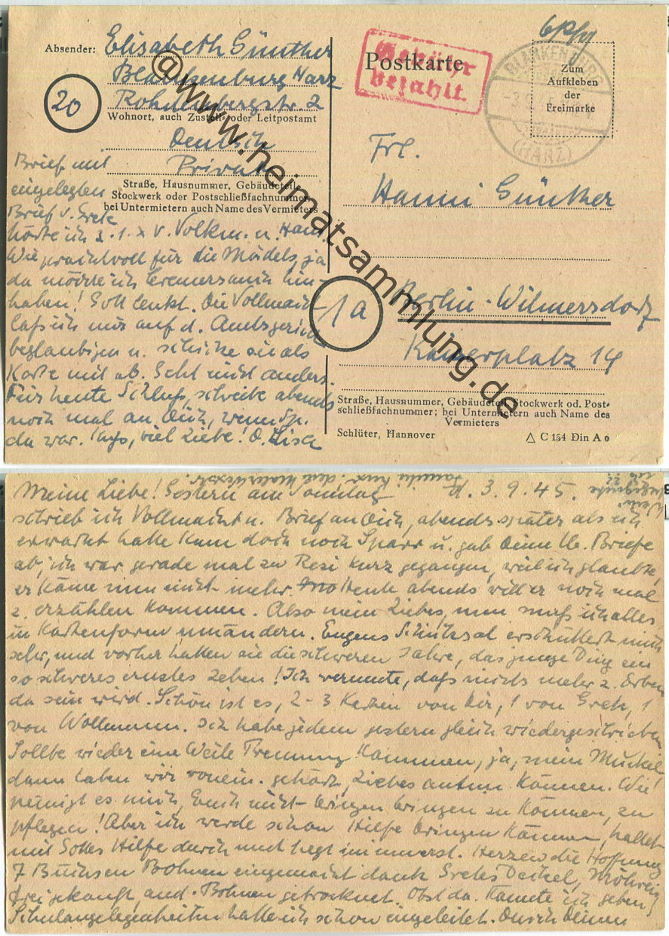 Absender: Elisabeth Günther
Blankenburg Harz
20
Wohnort, auch Zustell- oder Leitpostamt
Deutsche
Straße, Hausnummer, Gebäudeteil,
Stockwerk oder Postschließfachnummer;
bei Untermietern auch Name des Vermieters
Postkarte
Gebühr
bezahlt.
BLANKENBURG
(HARZ)
Zum
Aufkleben
der
Freimarke
Frl.
Hanni Günther
1a
Berlin-Wilmersdorf
Kaiserplatz 14
Straße, Hausnummer, Gebäudeteil, Stockwerk od. Post-
schließfachnummer; bei Untermietern auch Name des
Vermieters
Schlüter, Hannover
C 154 Din A 6
Brief mit
eingelegten
Brief v. Grete
Wie prachtvoll für die Mädels, ja
da möchte ich
haben! Gott lenkt. Die Vollmacht
laß ich nur auf d. Amtsgericht
beglaubigen u. schicke sie als
Karte mit ab. Geht nicht anders.
Für heute Schluß, schreibe abends
noch mal an Dich, wenn
da war. viel Liebe!
© www.heimatsammlung.de
Meine Liebe! Gestern am Sonntag 3.9.45.
schrieb ich Vollmacht u. Brief an Dich, abends später als ich
erwartet hatte kam doch noch u. gab Deine lb. Briefe
ab, ich war gerade mal zu Resi kurz gegangen, weil ich glaubte,
er käme nun nicht mehr. Heute abends will er noch mal
z. erzählen kommen. Also mein Liebes, nun muß ich alles
in Kartenform umändern. Eugens Schicksal erschüttert mich
sehr, und vorher hatten sie die schweren Jahre, das junge Ding ein
so schweres ernstes Leben! Ich vermute, daß nichts mehr z. Erben
da sein wird. Schön ist es, 2-3 Karten von Dir, 1 von Greth, 1
von Ich habe jedem gestern gleich wiedergeschrieben
Sollte wieder eine Weile Trennung kommen, ja, mein
dann haben wir vonein. gehört, Liebes antun können. Wie
peinigt es mich, Euch nicht bringen bringen zu können, zu
pflegen! Aber ich werde schon Hilfe bringen können, haltet
mit Gottes Hilfe durch und hegt im innerst. Herzen die Hoffnung
7 Büchsen Bohnen eingemacht dank Gretes Deckel,
gekauft, und Bohnen getrocknet. Obst da. Könnte ich geben!
Schulangelegenheiten hatte ich schon eingeleitet. Durch Deinen